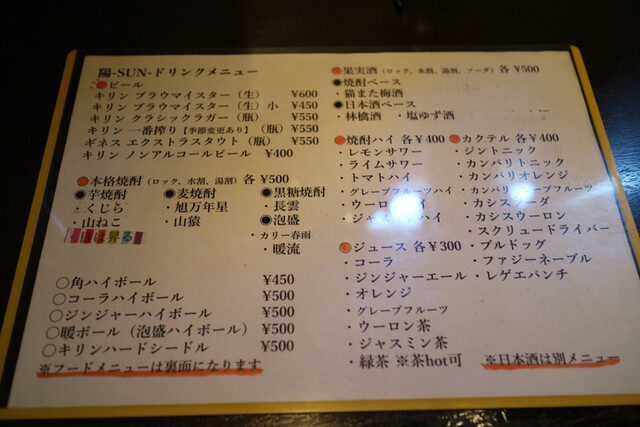 陽-SUN-ドリンクメニュー
ビール
キリン ブラウマイスター（生） ¥600
キリン ブラウマイスター（生）小 ¥450
キリン クラシックラガー（瓶） ¥550
キリン 一番搾り【季節変更あり】（瓶）¥550
ギネス エクストラスタウト（瓶） ¥550
キリン ノンアルコールビール ¥400
本格焼酎（ロック、水割、湯割）各 ¥500
芋焼酎
・くじら
・山ねこ
麦焼酎
・旭万年星
・山猿
黒糖焼酎
・長雲
泡盛
・カリー春雨
・暖流
○角ハイボール ¥450
○コーラハイボール ¥500
○ジンジャーハイボール ¥500
○暖ボール（泡盛ハイボール） ¥500
○キリンハードシードル ¥500
※フードメニューは裏面になります
果実酒（ロック、水割、湯割、ソーダ）各 ¥500
焼酎ベース
・猫また梅酒
日本酒ベース
・林檎酒 ・塩ゆず酒
焼酎ハイ 各¥400
・レモンサワー
・ライムサワー
・トマトハイ
・グレープフルーツハイ
・ウーロンハイ
・ジャスミンハイ
ジュース 各¥300
・コーラ
・ジンジャーエール
・オレンジ
・グレープフルーツ
・ウーロン茶
・ジャスミン茶
・緑茶 ※茶hot可
カクテル 各¥400
・ジントニック
・カンパリトニック
・カンパリオレンジ
・カンパリグレープフルーツ
・カシスソーダ
・カシスウーロン
・スクリュードライバー
・ブルドッグ
・ファジーネーブル
・レゲエパンチ
※日本酒は別メニュー